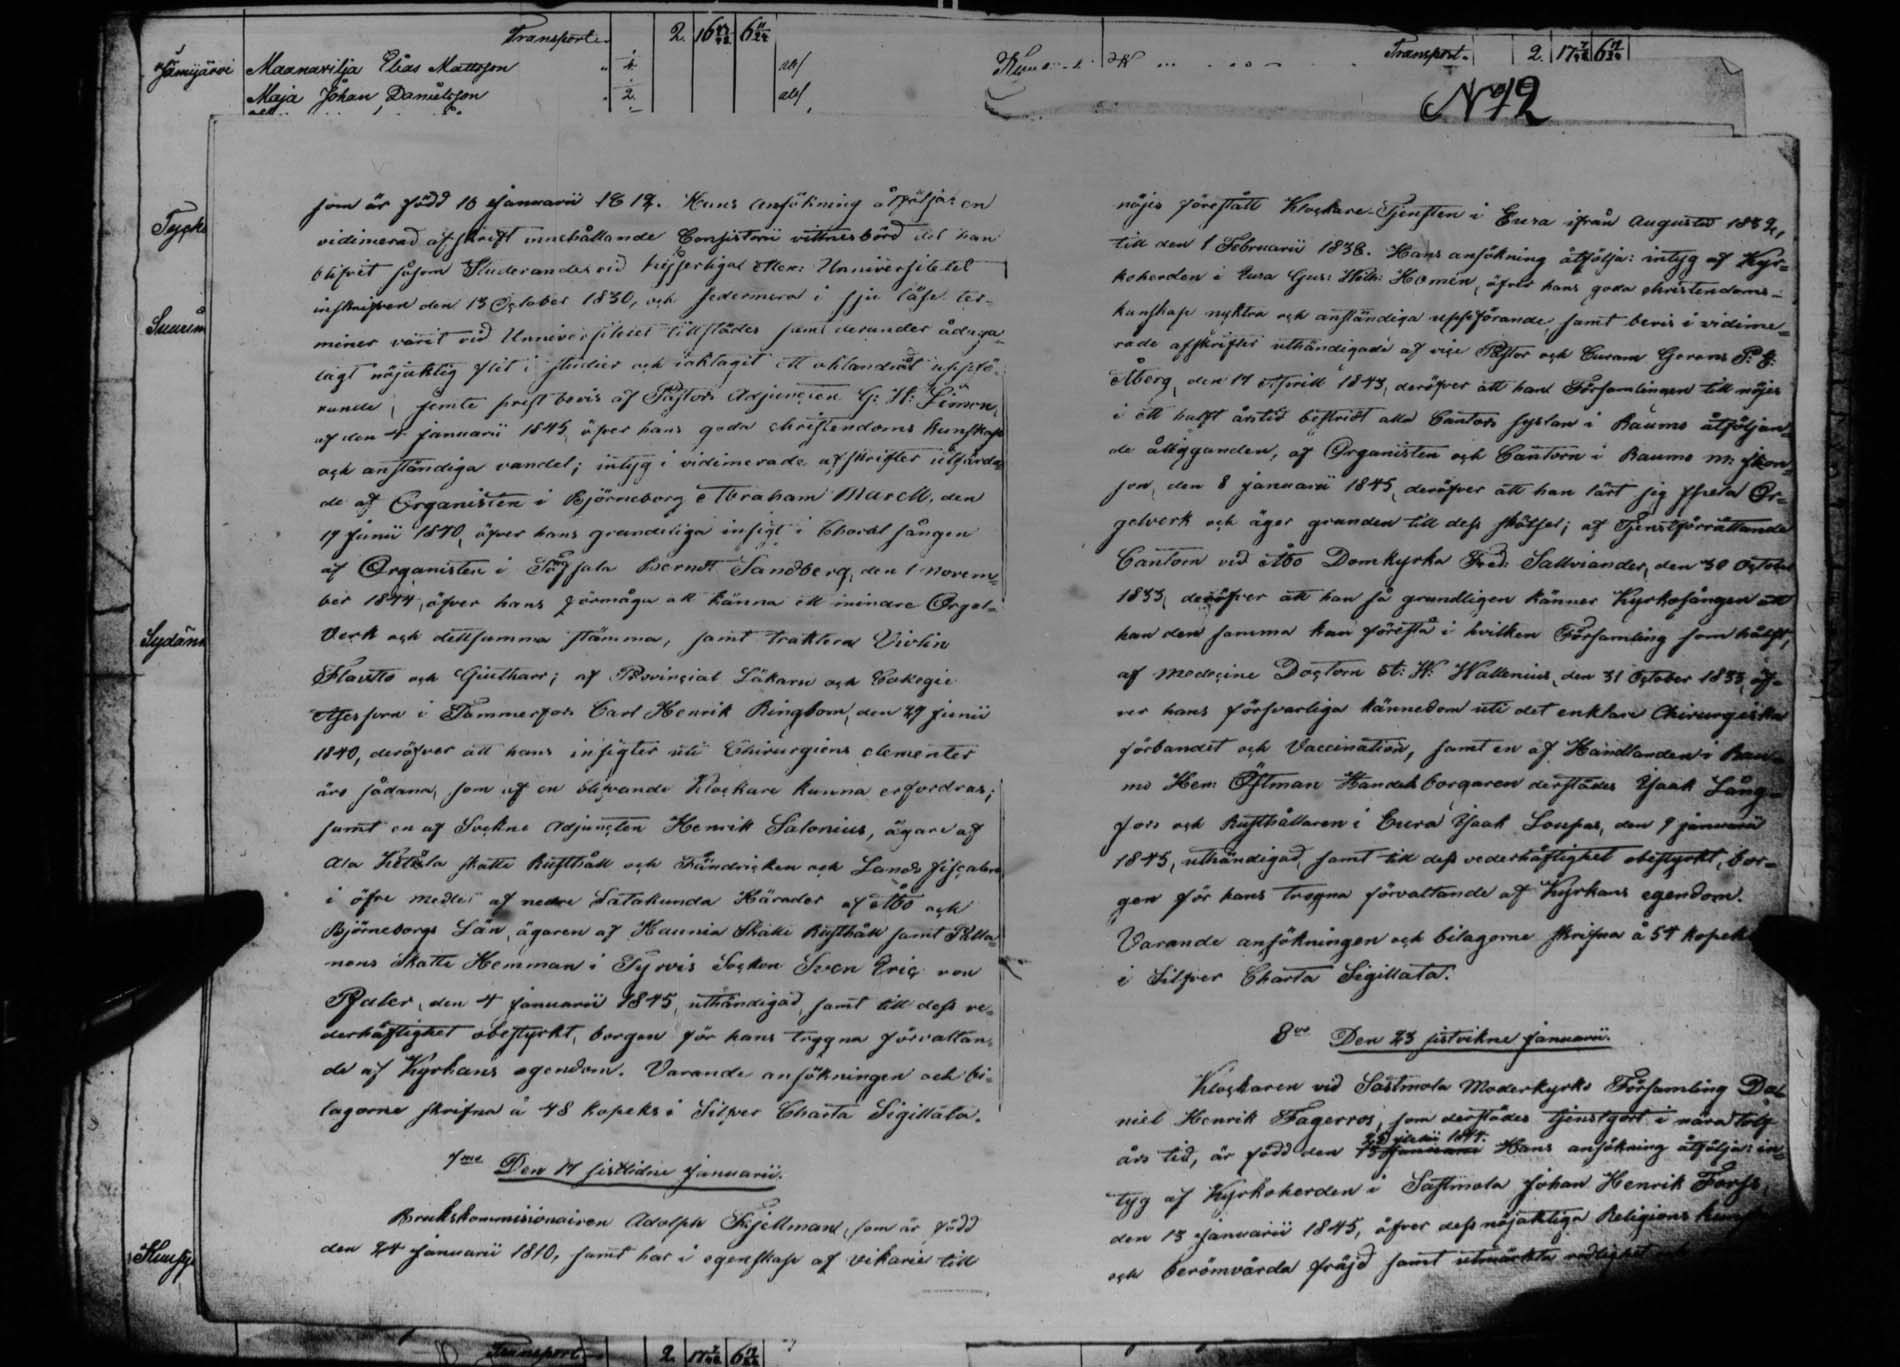 Transport. 2. 16 6
Jämijärvi Maanavilja Elias Mattsson
Maja Johan Danielsson
Transport. 2. 17 6
No 12
som är född 10 Januarii 1812. Hans ansökning åtföljas en
vidimerad afskrift innehållande Consistorii vittnesbörd det han
blifvit såsom Studerande vid Kejserliga Alex: Universitetet
inskrifven den 13 October 1830, och sedermera i sju läse ter-
miner varit vid Universitetet tillstädes samt derunder ådaga-
lagt nöjaktig flit i studier och iakttagit ett oklanderligt uppfö-
rande, jemte prest bevis af Pastors Adjuncten G: H: Limon,
af den 4 Januarii 1845, öfver hans goda christendoms kunskap
och anständiga vandel; intyg i vidimerade afskrifter utfärda-
de af Organisten i Björneborg Abraham Marck, den
19 Junii 1840, öfver hans grundeliga insigt i Choral sången
af Organisten i Sägsala Berndt Sandberg, den 1 Novem-
ber 1844, öfver hans förmåga att känna ett mindre Orgel-
Verk och detsamma stämma, samt traktera Violin
Flautto och Guitharr; af Provincial Läkaren och Collegii
Assessorn i Tammerfors Carl Henrik Ringbom, den 29 Junii
1840, deröfver att hans insigter uti Chirurgiens elementer
äro sådana, som af en blifvande Klockare kunna erfordras;
samt en af Sockne Adjuncten Henrik Salonius, ägare af
Ala Ketola skatte Rusthåll och Fändricken och Lands fiscalen
i öfre medlet af nedre Satakunda Härader af Åbo och
Björneborgs Län, ägaren af Haunia Skatte Rusthåll samt Palla-
nens Skatte Hemman i Tyrvis Socken Sven Eric von
Pfaler, den 4 Januarii 1845, uthändigad, samt till dess ve-
derhäftighet obestyrkt, borgen för hans trogna förvaltan-
de af Kyrkans egendom. Varande ansökningen och bi-
lagorne skrifna å 48 kopeks i Silfver Charta Sigillata.
7me Den 17 sistlidne Januarii.
Brukskommissionairen Adolph Fjellman, som är född
den 24 Januarii 1810, samt har i egenskap af vikarie till
nöjes förestått Klockare-Tjensten i Eura ifrån Augusto 1832,
till den 1 Februarii 1838. Hans ansökning åtfölja: intyg af Kyr-
koherden i Eura Gus: Wilh: Homén, öfver hans goda christendoms-
kunskap nyktra och anständiga uppförande, samt bevis i vidime-
rade afskrifter uthändigade af vice Pastor och Curam Gerens P: J:
Åberg, den 17 Aprill 1843, deröfver att han Församlingen till nöjes
i ett halft årstid bestridt alla Cantors syslan i Raumo åtföljan-
de åligganden, af Organisten och Cantorn i Raumo M: Ekon-
son, den 8 Januarii 1845, deröfver att han lärt sig spela Or-
gelverk och äger grunden till dess skötsel; af Tjenstförrättande
Cantorn vid Åbo Domkyrka Fred: Sallviander, den 30 October
1833, deröfver att han så grundligen känner Kyrkosången att
han den samma kan förestå i hvilken Församling som hälst,
af Medicine Doctorn A: H: Wallenius, den 31 October 1833, öf-
ver hans försvarliga kännedom uti det enklare Chirurgiska
förbandet och Vaccination, samt en af Handlanden i Rau-
mo Hen: Östman Handels borgaren derstädes Isaak Lång-
fors och Rusthållaren i Eura Isaak Loupas, den 9 Januarii
1845, uthändigad, samt till dess vederhäftighet obestyrkt, bor-
gen för hans trogna förvaltande af Kyrkans egendom.
Varande ansökningen och bilagorne skrifna å 54 kopek
i Silfver Charta Sigillata.
8vo Den 23 sistvikne Januarii.
Klockaren vid Sastmola Moderkyrko Församling Da-
niel Henrik Fagerros, som derstädes tjenstgort i nära tolf
års tid, är född den 15 Januarii Hans ansökning åtfölja: in-
tyg af Kyrkoherden i Sastmola Johan Henrik Forss,
den 13 Januarii 1845, öfver dess nöjaktiga Religions
och berömvärda fräjd samt utmärkta redlighet
Transport 2 17 6